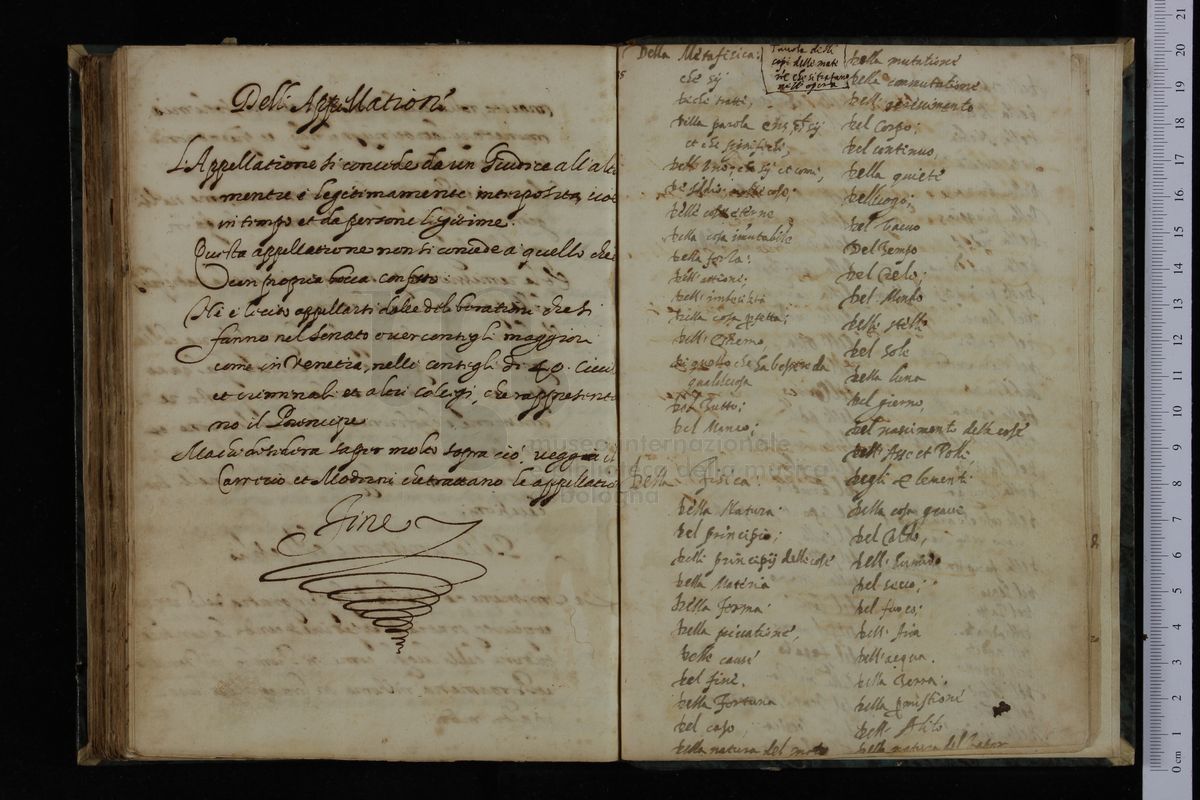 Dell'Appellationi
L'Appellatione si concede da un Giudice all'al
mentre è legitimamente interposita, cioè
in tempo et da persone legitime.
Questa appellatione non si concede a quello che
con propria bocca confessò.
Nè è lecito appellarsi dalle deliberationi che si
fanno nel Senato over consigli maggiori
come in Venetia, nelli consigli di 40. Civi
et criminali et altri colegi, che rappresenta
no il Principe
Ma chi desidera saper molto sopra ciò vegga il
et che trattano le appellatio
Fine
Della Metafisica:
che sij
di che tratti,
Della parola ens,
et che significhi,
Dell'Uno; che sij et come,
Delle cose eterne
Della cosa imutabile
Della forza:
Dell'attione:
Della cosa
Di quello che ha
qualche cosa
Del Tutto;
Del Manco;
Della Fisica:
Della Natura:
Del principio;
Delli principij delle cose
Della Materia
Della Forma:
Della privatione,
Delle cause
Del fine.
Della Fortuna
Del caso
Della natura del moto
Tavola delli
capi delle mate
rie che si tratano
nell'opera
Della mutatione
Della commutatione
Dell'
Del Corpo;
Del continuo,
Della quiete
Del luogo;
Del Vacuo
Del Tempo
Del Cielo;
Del Mondo
Delle stelle
Del Sole
Della Luna
Del giorno,
Del nascimento delle cose
Dell'Asse et Poli
Degli Elementi
Della cosa grave
Del Caldo,
Dell'humido
Del secco;
Del fuoco;
Dell'Aria
Dell'acqua.
Della Terra:
Della mistione
Dell'Alito
Della natura del Vapor
museo internazionale
e biblioteca della musica
bologna